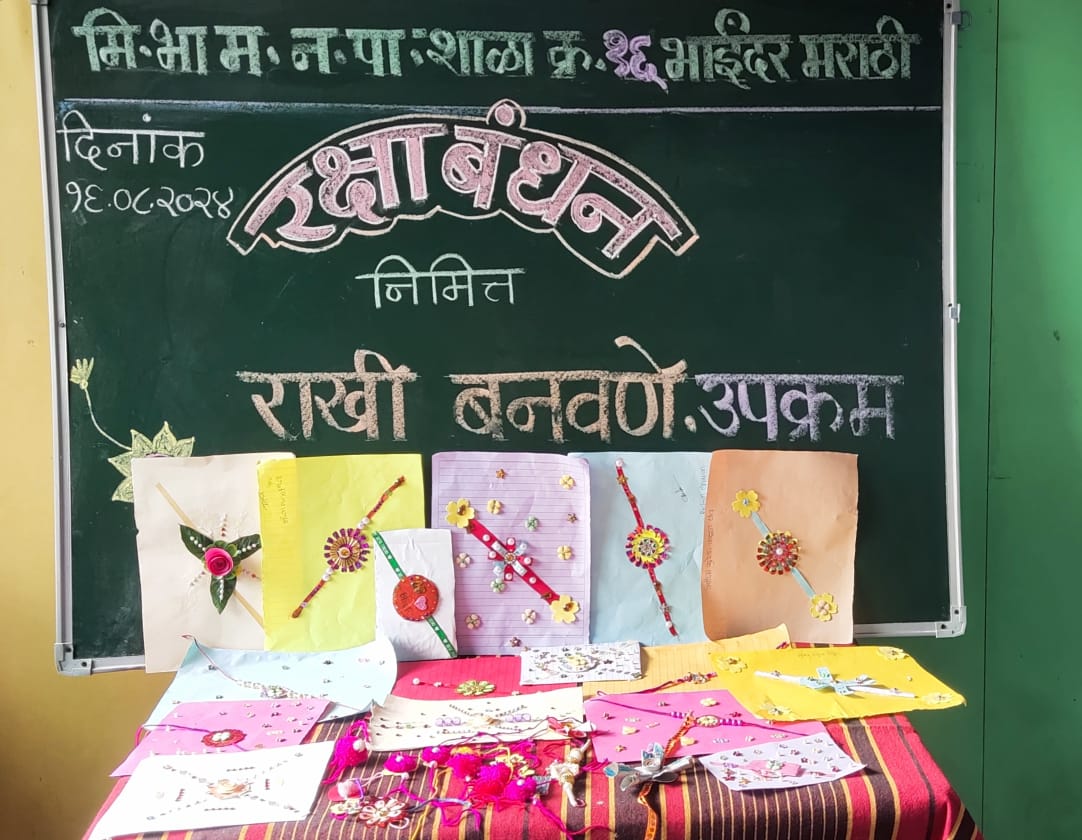 मि.भा म. न.पा.शाळा क्र.१६ भाईंदर मराठी
दिनांक
१६.०८.२०२४
रक्षा बंधन
निमित्त
राखी बनवणे.उपक्रम